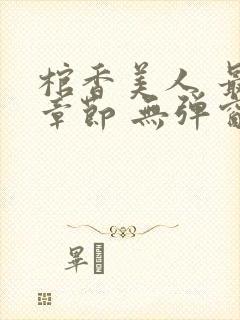 棺香美人 最
章節 無彈窗
畢